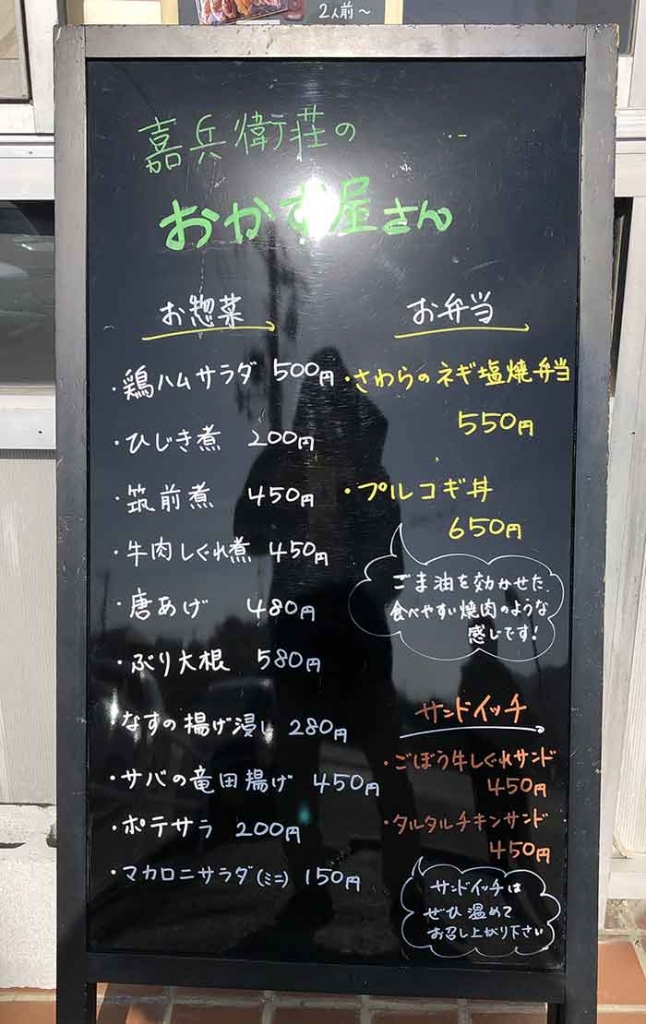 2人前〜
嘉兵衛荘の
おかず屋さん
お惣菜
・鶏ハムサラダ 500円
・ひじき煮 200円
・筑前煮 450円
・牛肉しぐれ煮 450円
・唐あげ 480円
・ぶり大根 580円
・なすの揚げ浸し 280円
・サバの竜田揚げ 450円
・ポテサラ 200円
・マカロニサラダ(ミニ) 150円
お弁当
・さわらのネギ塩焼弁当
550円
・プルコギ丼
650円
ごま油を効かせた
食べやすい焼肉のような
感じです!
サンドイッチ
・ごぼう牛しぐれサンド
450円
・タルタルチキンサンド
450円
サンドイッチは
ぜひ温めて
お召し上がり下さい